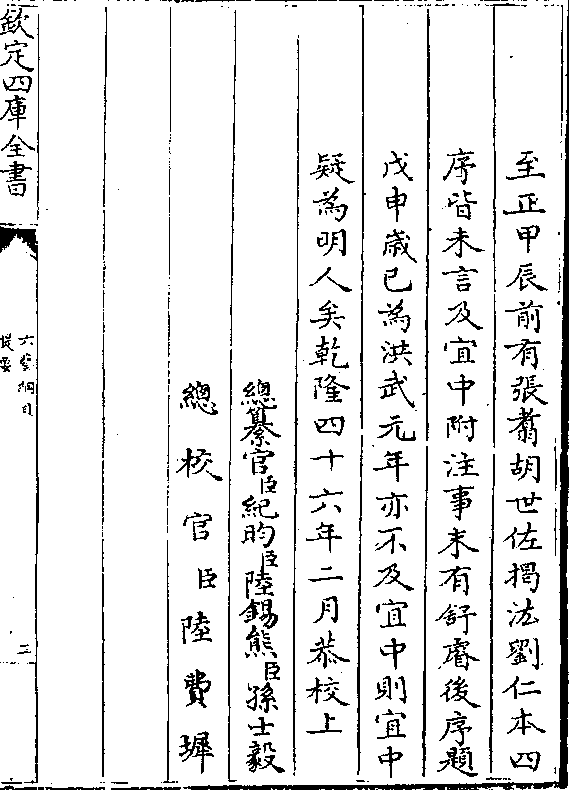 至正甲辰前有張翥胡世佐揭汯劉仁本四
序皆未言及宜中附注事末有舒睿後序題
戊申嵗已為洪武元年亦不及宜中則宜中
疑為明人矣乾隆四十六年二月恭校上
總纂官臣紀昀臣陸錫熊臣孫士毅
總校官臣陸費墀
欽定四庫全書
六藝綱目
提要
三